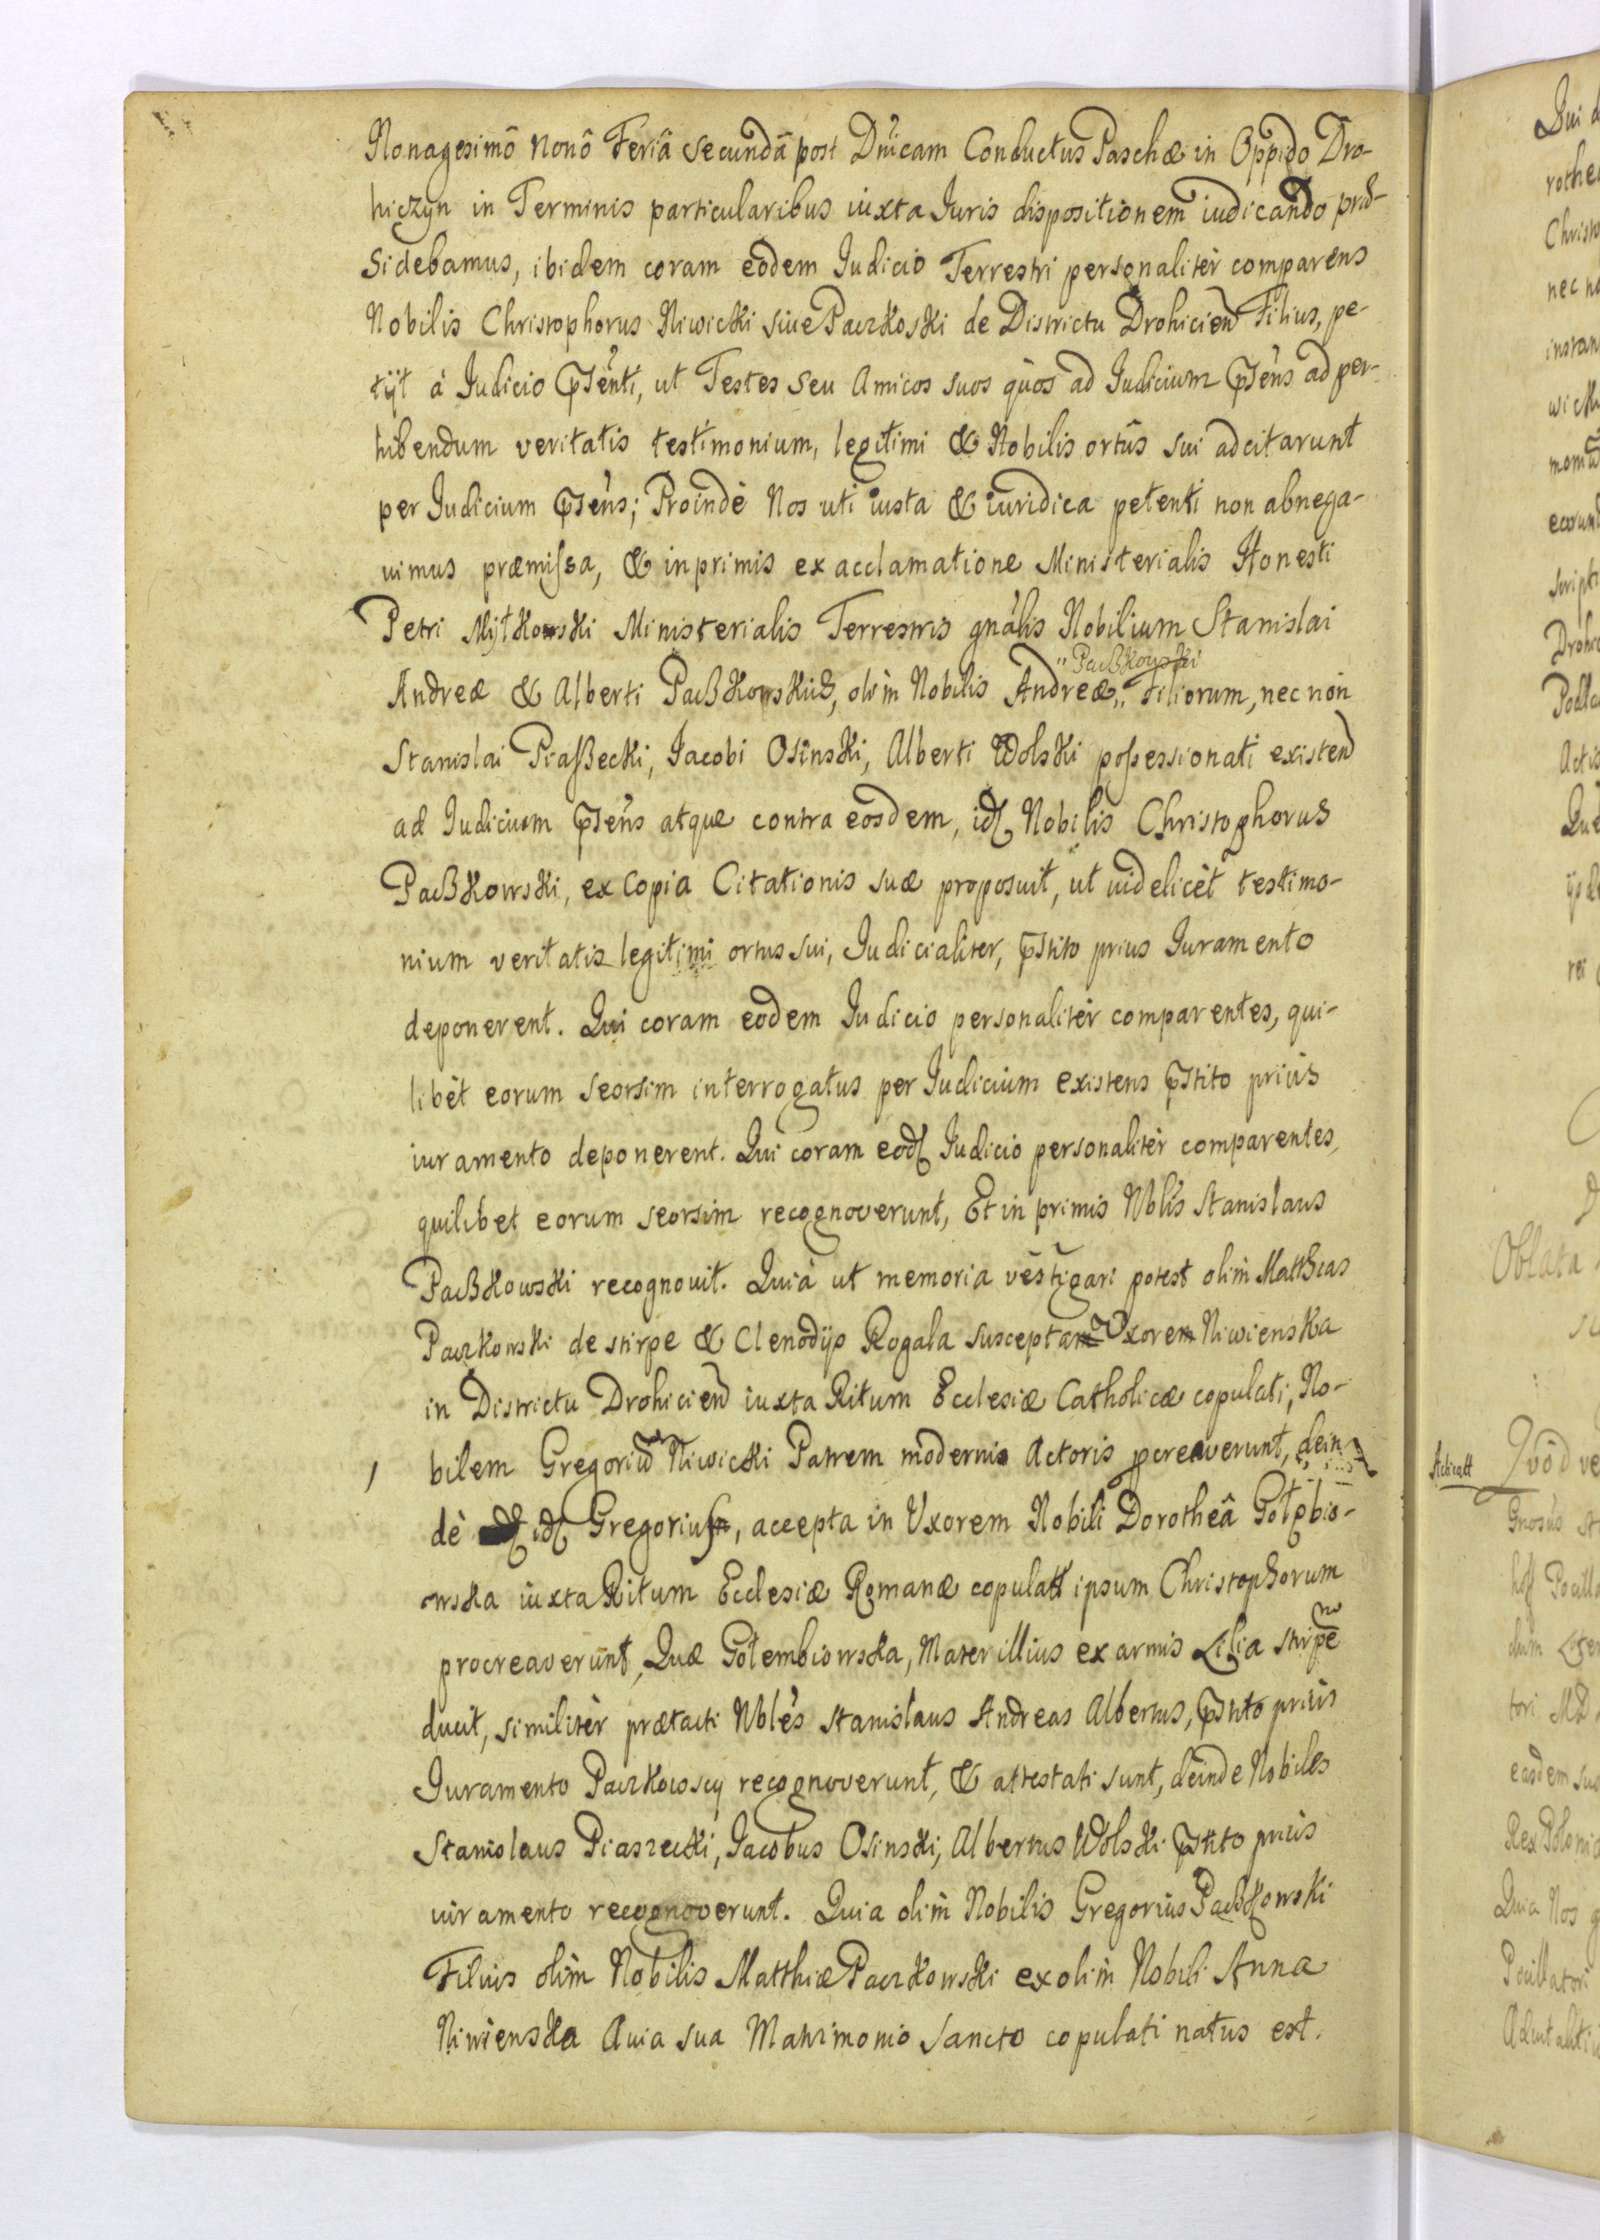 Nonagesimô nonô Feriâ secundâ post Dnicam Conductus Paschæ in Oppido Dro-
hiczyn in Terminis particularibus iuxta Juris dispositionem iudicando præ-
sidebamus, ibidem coram eodem Judicio Terrestri personalitèr comparens
Nobilis Christophorus Niwicki siue Paczkoski de Districtu Drohicien Filius, pe-
tÿt à Judicio pñti, ut Testes seu Amicos suos quos ad Judicium pñs ad per-
hibendum veritatis testimonium, legitimi & Nobilis ortûs sui adcitarunt
per Judicium pñs; Proindè Nos uti iusta & iuridica petenti non abnega-
uimus præmissa, & inprimis ex acclamatione Ministerialis Honesti
Petri Mÿłkowski Ministerialis Terrestris gnãlis Nobilium Stanislai
" Paßkowski
Andreæ & Alberti Paßkowskich, olim Nobilis Andreæ " Filiorum, nec non
Stanislai Piaßecki, Jacobi Osinski, Alberti Wolski possessionati existen
ad Judicium pñs atque contra eosdem, id Nobilis Christophorus
Paßkowski, ex Copia Citationis suæ proposuit, ut uidelicèt testimo-
nium veritatis legitimi ortus sui, Judicialiter, pstito prius Juramento
deponerent. Qui coram eodem Judicio personalitèr comparentes, qui-
libèt eorum seorsim interrogatus per Judicium existens pstito priùs
iuramento deponerent. Qui coram eod Judicio personalitèr comparentes,
quilibet eorum seorsim recognoverunt, Et in primis Nblis Stanislaus
Paßkowski recognouit. Quià ut memoria vestigari potest olim Matthias
Paczkowski de stirpe & Clenodÿs Rogala susceptam Uxorem Niwienska
in Districtu Drohicien iuxta Ritum Ecclesiæ Catholicæ copulati, No-
bilem Gregoriũ Niwicki Patrem moderni Actoris pcreaverunt, dein
dè id Gregorius, accepta in Uxorem Nobili Dorotheâ Gołębio-
wska iuxta Ritum Ecclesiæ Romanæ copulati ipsum Christophorum
procreaverunt, Quæ Gołembiowska, Mater illius ex armis Lilia stirpẽ
ducit, similitèr prætacti Nbles Stanislaus Andreas Albertus, pstito priùs
Juramento Paczkowscy recognoverunt, & attestati sunt, deinde Nobiles
Stanislaus Piaszecki, Jacobus Osinski, Albertus Wolski pstito priùs
iuramento recognoverunt. Quia olim Nobilis Gregorius Paßkowski
Filius olim Nobilis Matthiæ Paczkowski ex olim Nobili Anna
Niwienska Auia sua Matrimonio sancto copulati natus est.